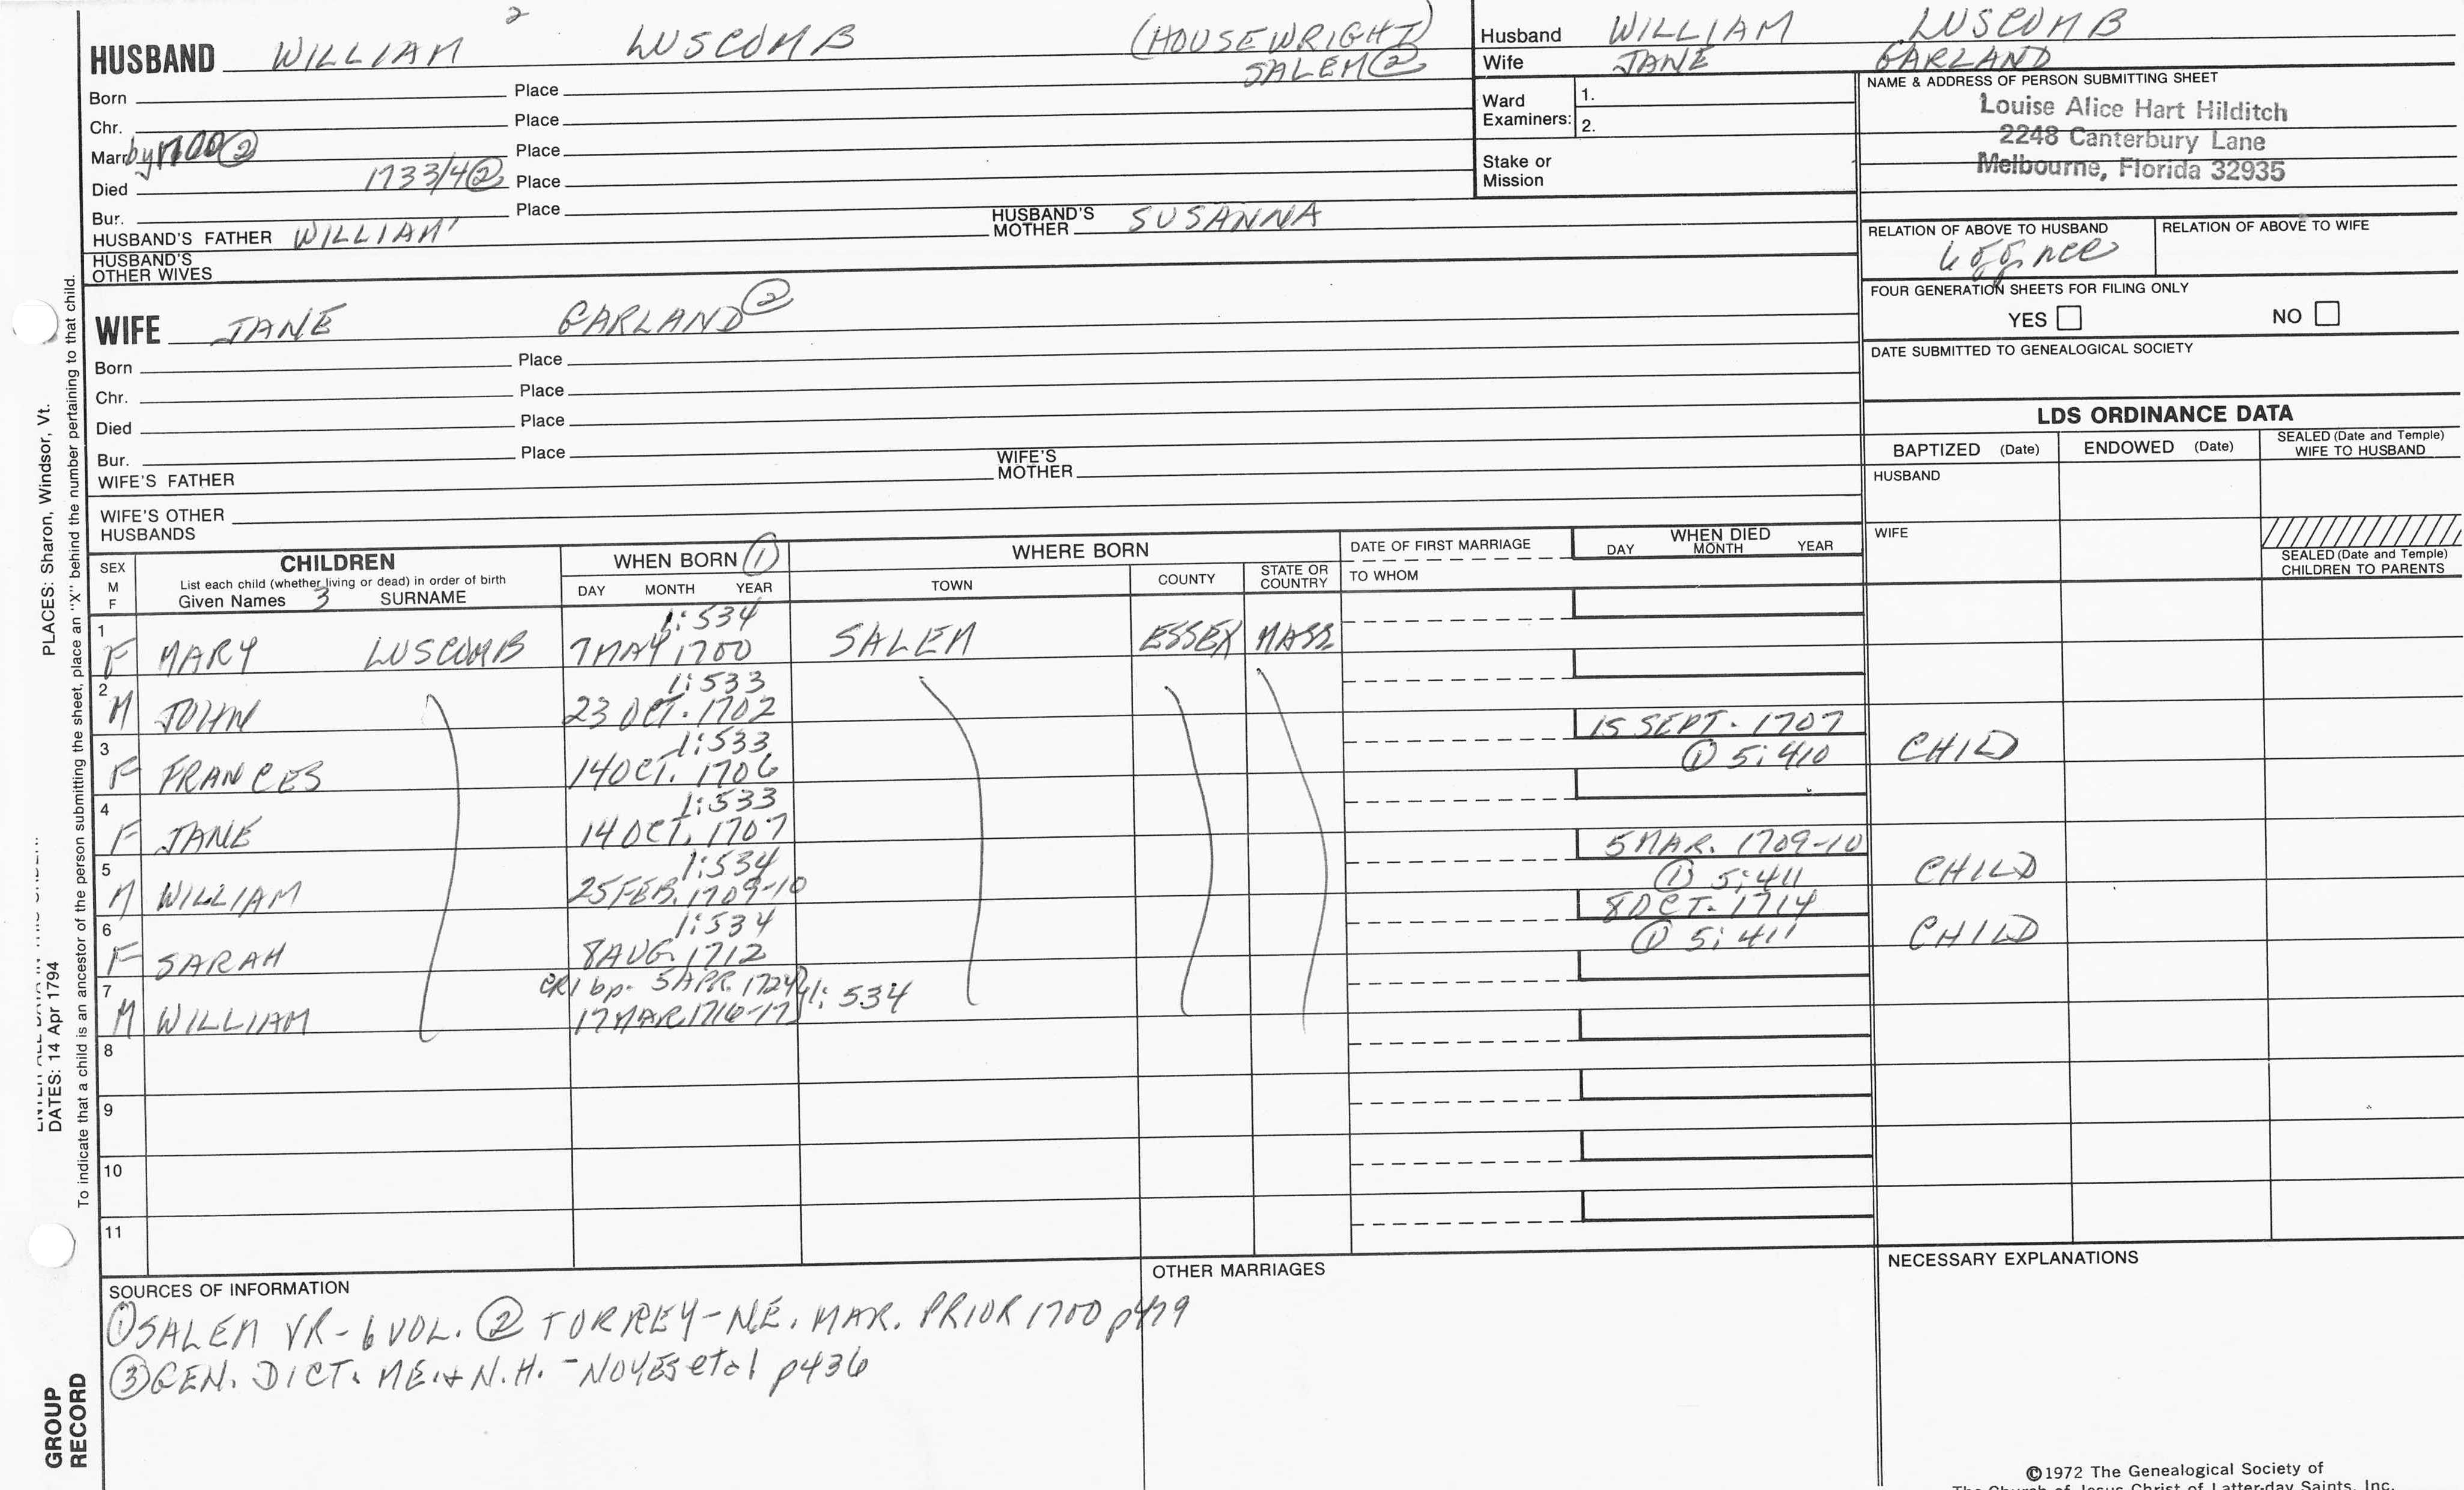 HUSBAND WILLIAM 2 LUSCOMB (HOUSEWRIGHT)
SALEM ②
Born Place
Chr. Place
Marr. by 1700 ② Place
Died 1733/4 ② Place
Bur. Place
HUSBAND'S FATHER WILLIAM' HUSBAND'S MOTHER SUSANNA
HUSBAND'S
OTHER WIVES
WIFE JANE GARLAND ②
Born Place
Chr. Place
Died Place
Bur. Place
WIFE'S FATHER WIFE'S MOTHER
WIFE'S OTHER
HUSBANDS
Husband WILLIAM LUSCOMB
Wife JANE GARLAND
Ward
Examiners: 1.
2.
Stake or
Mission
NAME & ADDRESS OF PERSON SUBMITTING SHEET
Louise Alice Hart Hilditch
2248 Canterbury Lane
Melbourne, Florida 32935
RELATION OF ABOVE TO HUSBAND RELATION OF ABOVE TO WIFE
FOUR GENERATION SHEETS FOR FILING ONLY
YES NO
DATE SUBMITTED TO GENEALOGICAL SOCIETY
LDS ORDINANCE DATA
BAPTIZED (Date) ENDOWED (Date) SEALED (Date and Temple)
WIFE TO HUSBAND
HUSBAND
WIFE
SEALED (Date and Temple)
CHILDREN TO PARENTS
SEX
M
F
CHILDREN
List each child (whether living or dead) in order of birth
Given Names 3 SURNAME
WHEN BORN ①
DAY MONTH YEAR
WHERE BORN
TOWN COUNTY STATE OR
COUNTRY
DATE OF FIRST MARRIAGE
TO WHOM
WHEN DIED
DAY MONTH YEAR
1 1:534
F MARY LUSCOMB 7 MAY 1700 SALEM ESSEX MASS.
2 1:533
M JOHN 23 OCT. 1702
3 1:533 15 SEPT. 1707
F FRANCES 14 OCT. 1706 ① 5:410 CHILD
4 1:533
F JANE 14 OCT. 1707
5 1:534 5 MAR. 1709-10
M WILLIAM 25 FEB. 1709-10 ① 5:411 CHILD
6 1:534 8 OCT. 1714
F SARAH 8 AUG. 1712 ① 5:411 CHILD
7 CR1 bp. 5 APR. 1724 1:534
M WILLIAM 17 MAR 1716-17
8
9
10
11
SOURCES OF INFORMATION
① SALEM VR - 6 VOL. ② TORREY - N.E. MAR. PRIOR 1700 p479
③ GEN. DICT. ME. & N.H. - NOYES et al p436
OTHER MARRIAGES
NECESSARY EXPLANATIONS
©1972 The Genealogical Society of
The Church of Jesus Christ of Latter-day Saints, Inc.
PLACES: Sharon, Windsor, Vt.
DATES: 14 Apr 1794
To indicate that a child is an ancestor of the person submitting the sheet, place an "X" behind the number pertaining to that child.
GROUP
RECORD